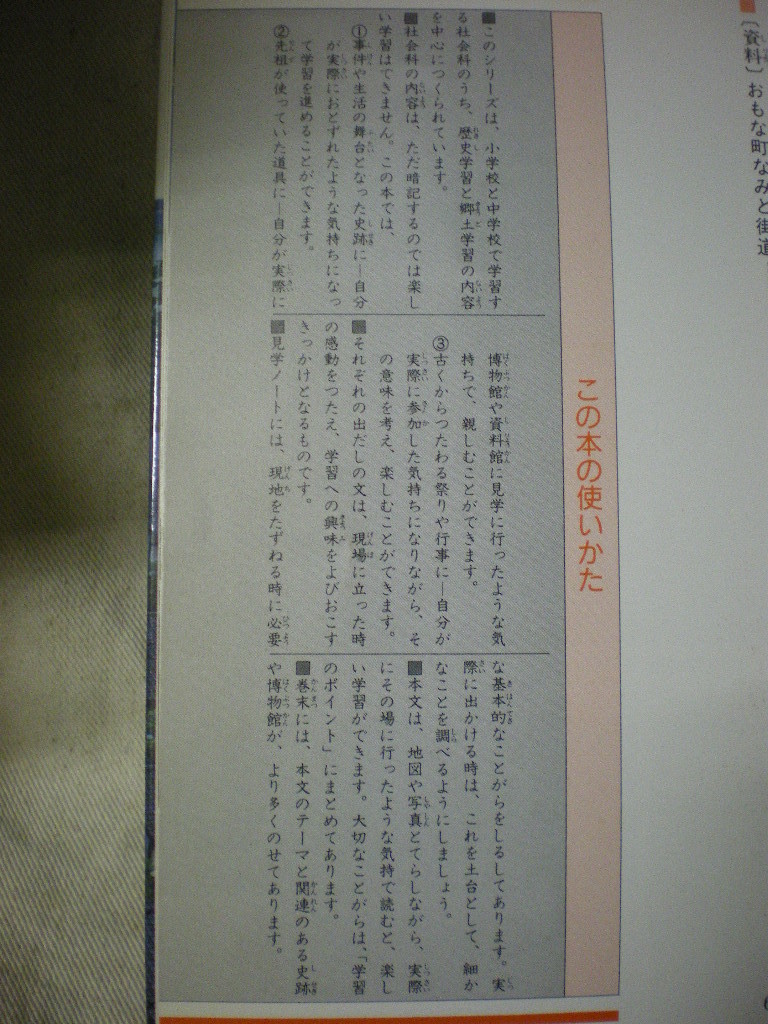 〔資料〕おもな町なみと街道
この本の使いかた
■このシリーズは、小学校と中学校で学習す
る社会科のうち、歴史学習と郷土学習の内容
を中心につくられています。
■社会科の内容は、ただ暗記するのでは楽し
い学習はできません。この本では、
①事件や生活の舞台となった史跡に—自分
が実際におとずれたような気持ちになっ
て学習を進めることができます。
②先祖が使っていた道具に—自分が実際に
博物館や資料館に見学に行ったような気
持ちで、親しむことができます。
③古くからつたわる祭りや行事に—自分が
実際に参加した気持ちになりながら、そ
の意味を考え、楽しむことができます。
■それぞれの出だしの文は、現場に立った時
の感動をつたえ、学習への興味をよびおこす
きっかけとなるものです。
■見学ノートには、現地をたずねる時に必要
な基本的なことがらをしるしてあります。実
際に出かける時は、これを土台として、細か
なことを調べるようにしましょう。
■本文は、地図や写真とてらしながら、実際
にその場に行ったような気持で読むと、楽し
い学習ができます。大切なことがらは、「学習
のポイント」にまとめてあります。
■巻末には、本文のテーマと関連のある史跡
や博物館が、より多くのせてあります。